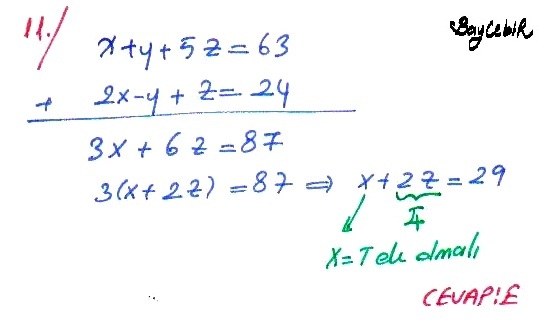 11./
BayCebiR
x+y+5z=63
+ 2x-y+z=24
3x+6z=87
3(x+2z)=87 ⇒ x+2z=29
Ç
x=Tek olmalı
CEVAP:E